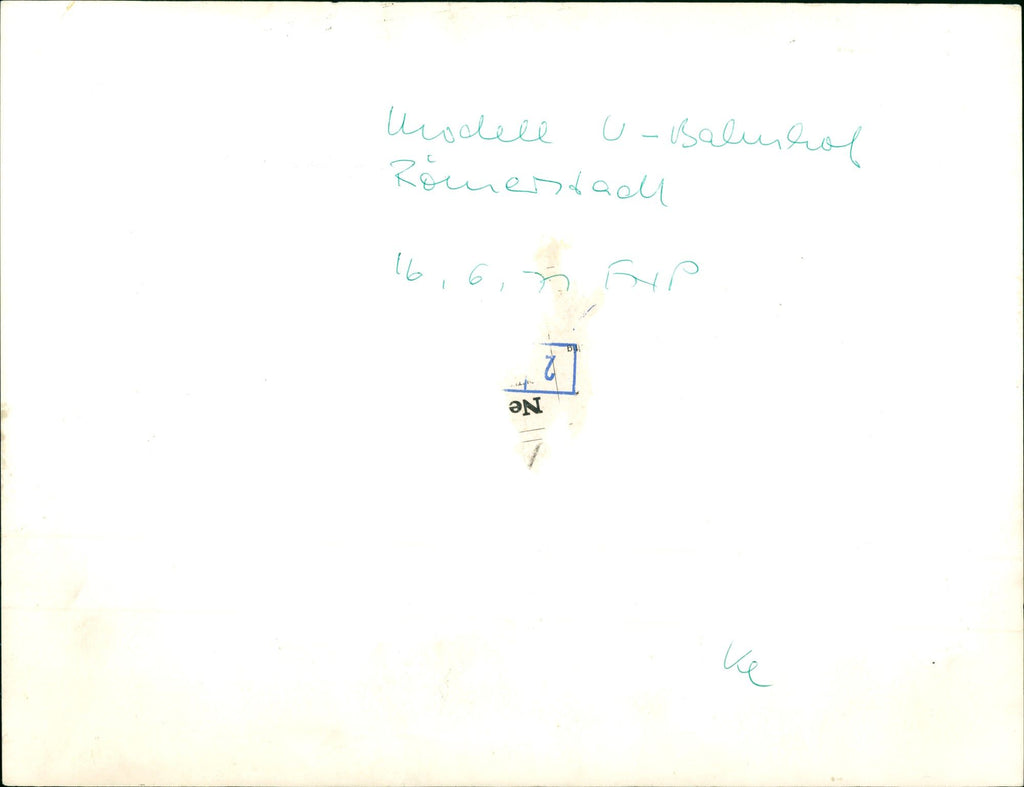 Modell U-Bahnhof
Römerstadt
16.6.77 FNP
2
Ne
Ke